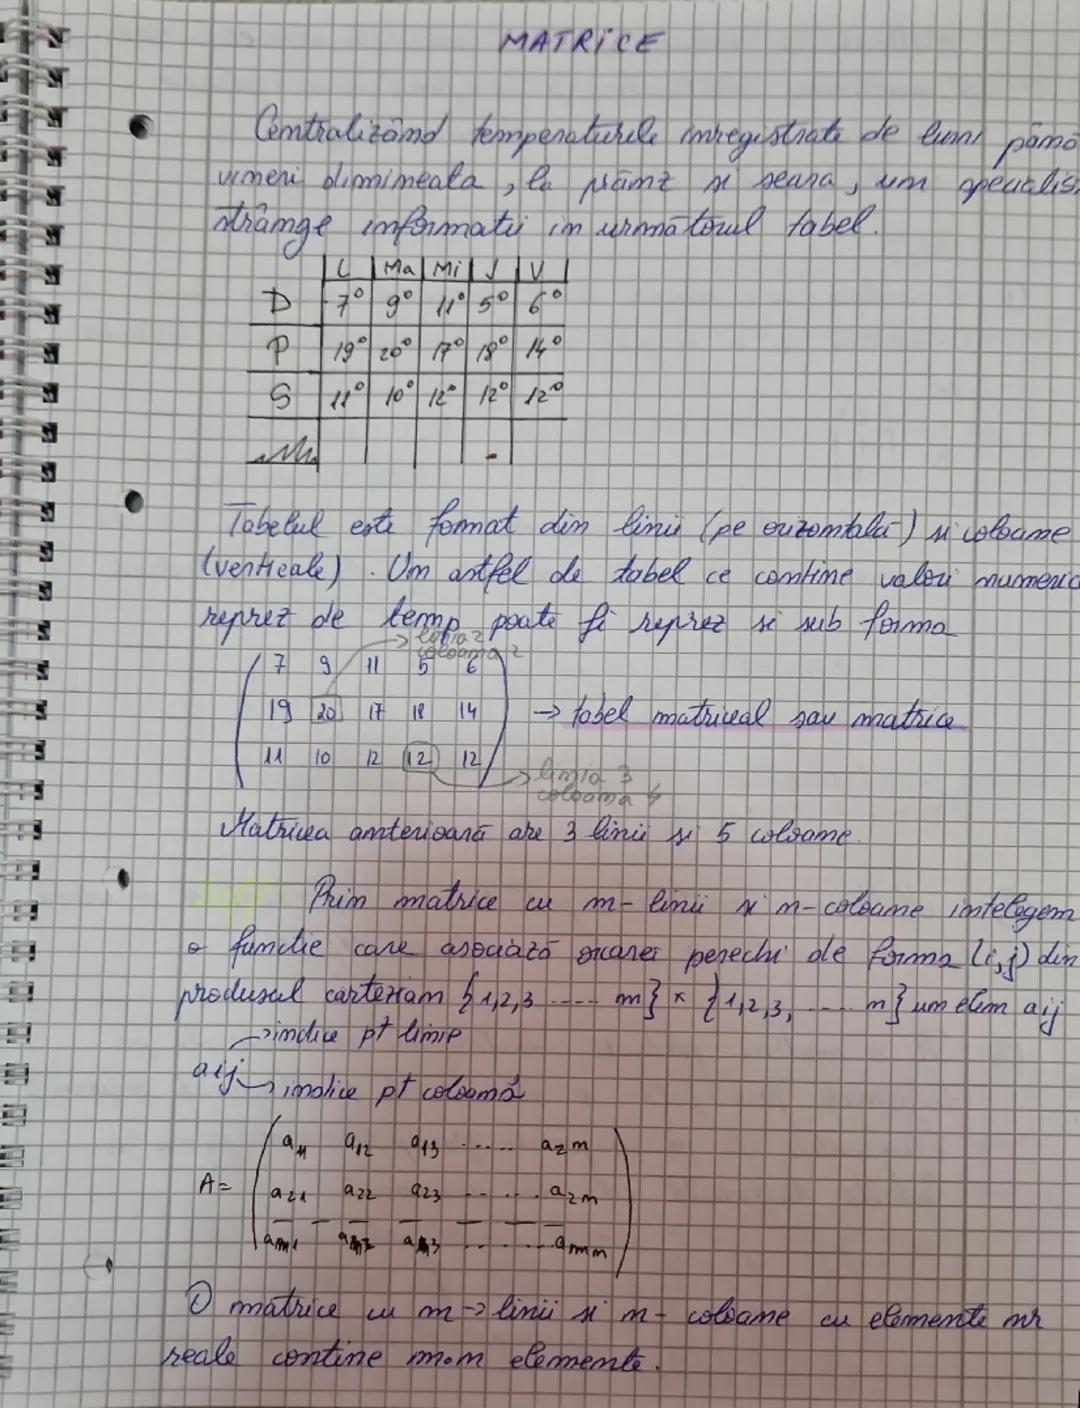 MATRICE
Centralizând temperaturile inregistrate de luni până
vineri dimineata, la prânz si seara, un specialis
strânge informatii in următorul tabel.
L Ma Mi J V
D 7° 9° 11° 5° 6°
P 19° 20° 17° 18° 14°
S 11° 10° 12° 12° 12°
Tabelul este format din linii (pe orizontală) si coloane
(verticale). Un astfel de tabel ce contine valori numeric
reprez de temp poate fi reprez si sub forma
linia 2
coloana 2
7 9 11 5 6
19 20 17 18 14 → tabel matriceal sau matrice
11 10 12 12 12
linia 3
coloana 4
Matricea anterioară are 3 linii si 5 coloane.
Prin matrice cu m-linii si n-coloane intelegem
o functie care asociază oricarei perechi de forma (i,j) din
produsul cartezian {1,2,3 ..... m} × {1,2,3, ..... n} un elem aij
→ indice pt linie
aij
→ indice pt coloană
a11 a12 a13 ..... a2n
A= a21 a22 a23 ..... a2n
am1 am2 am3 ..... amn
O matrice cu m→linii si n- coloane cu elemente nr
reale contine m.n elemente.